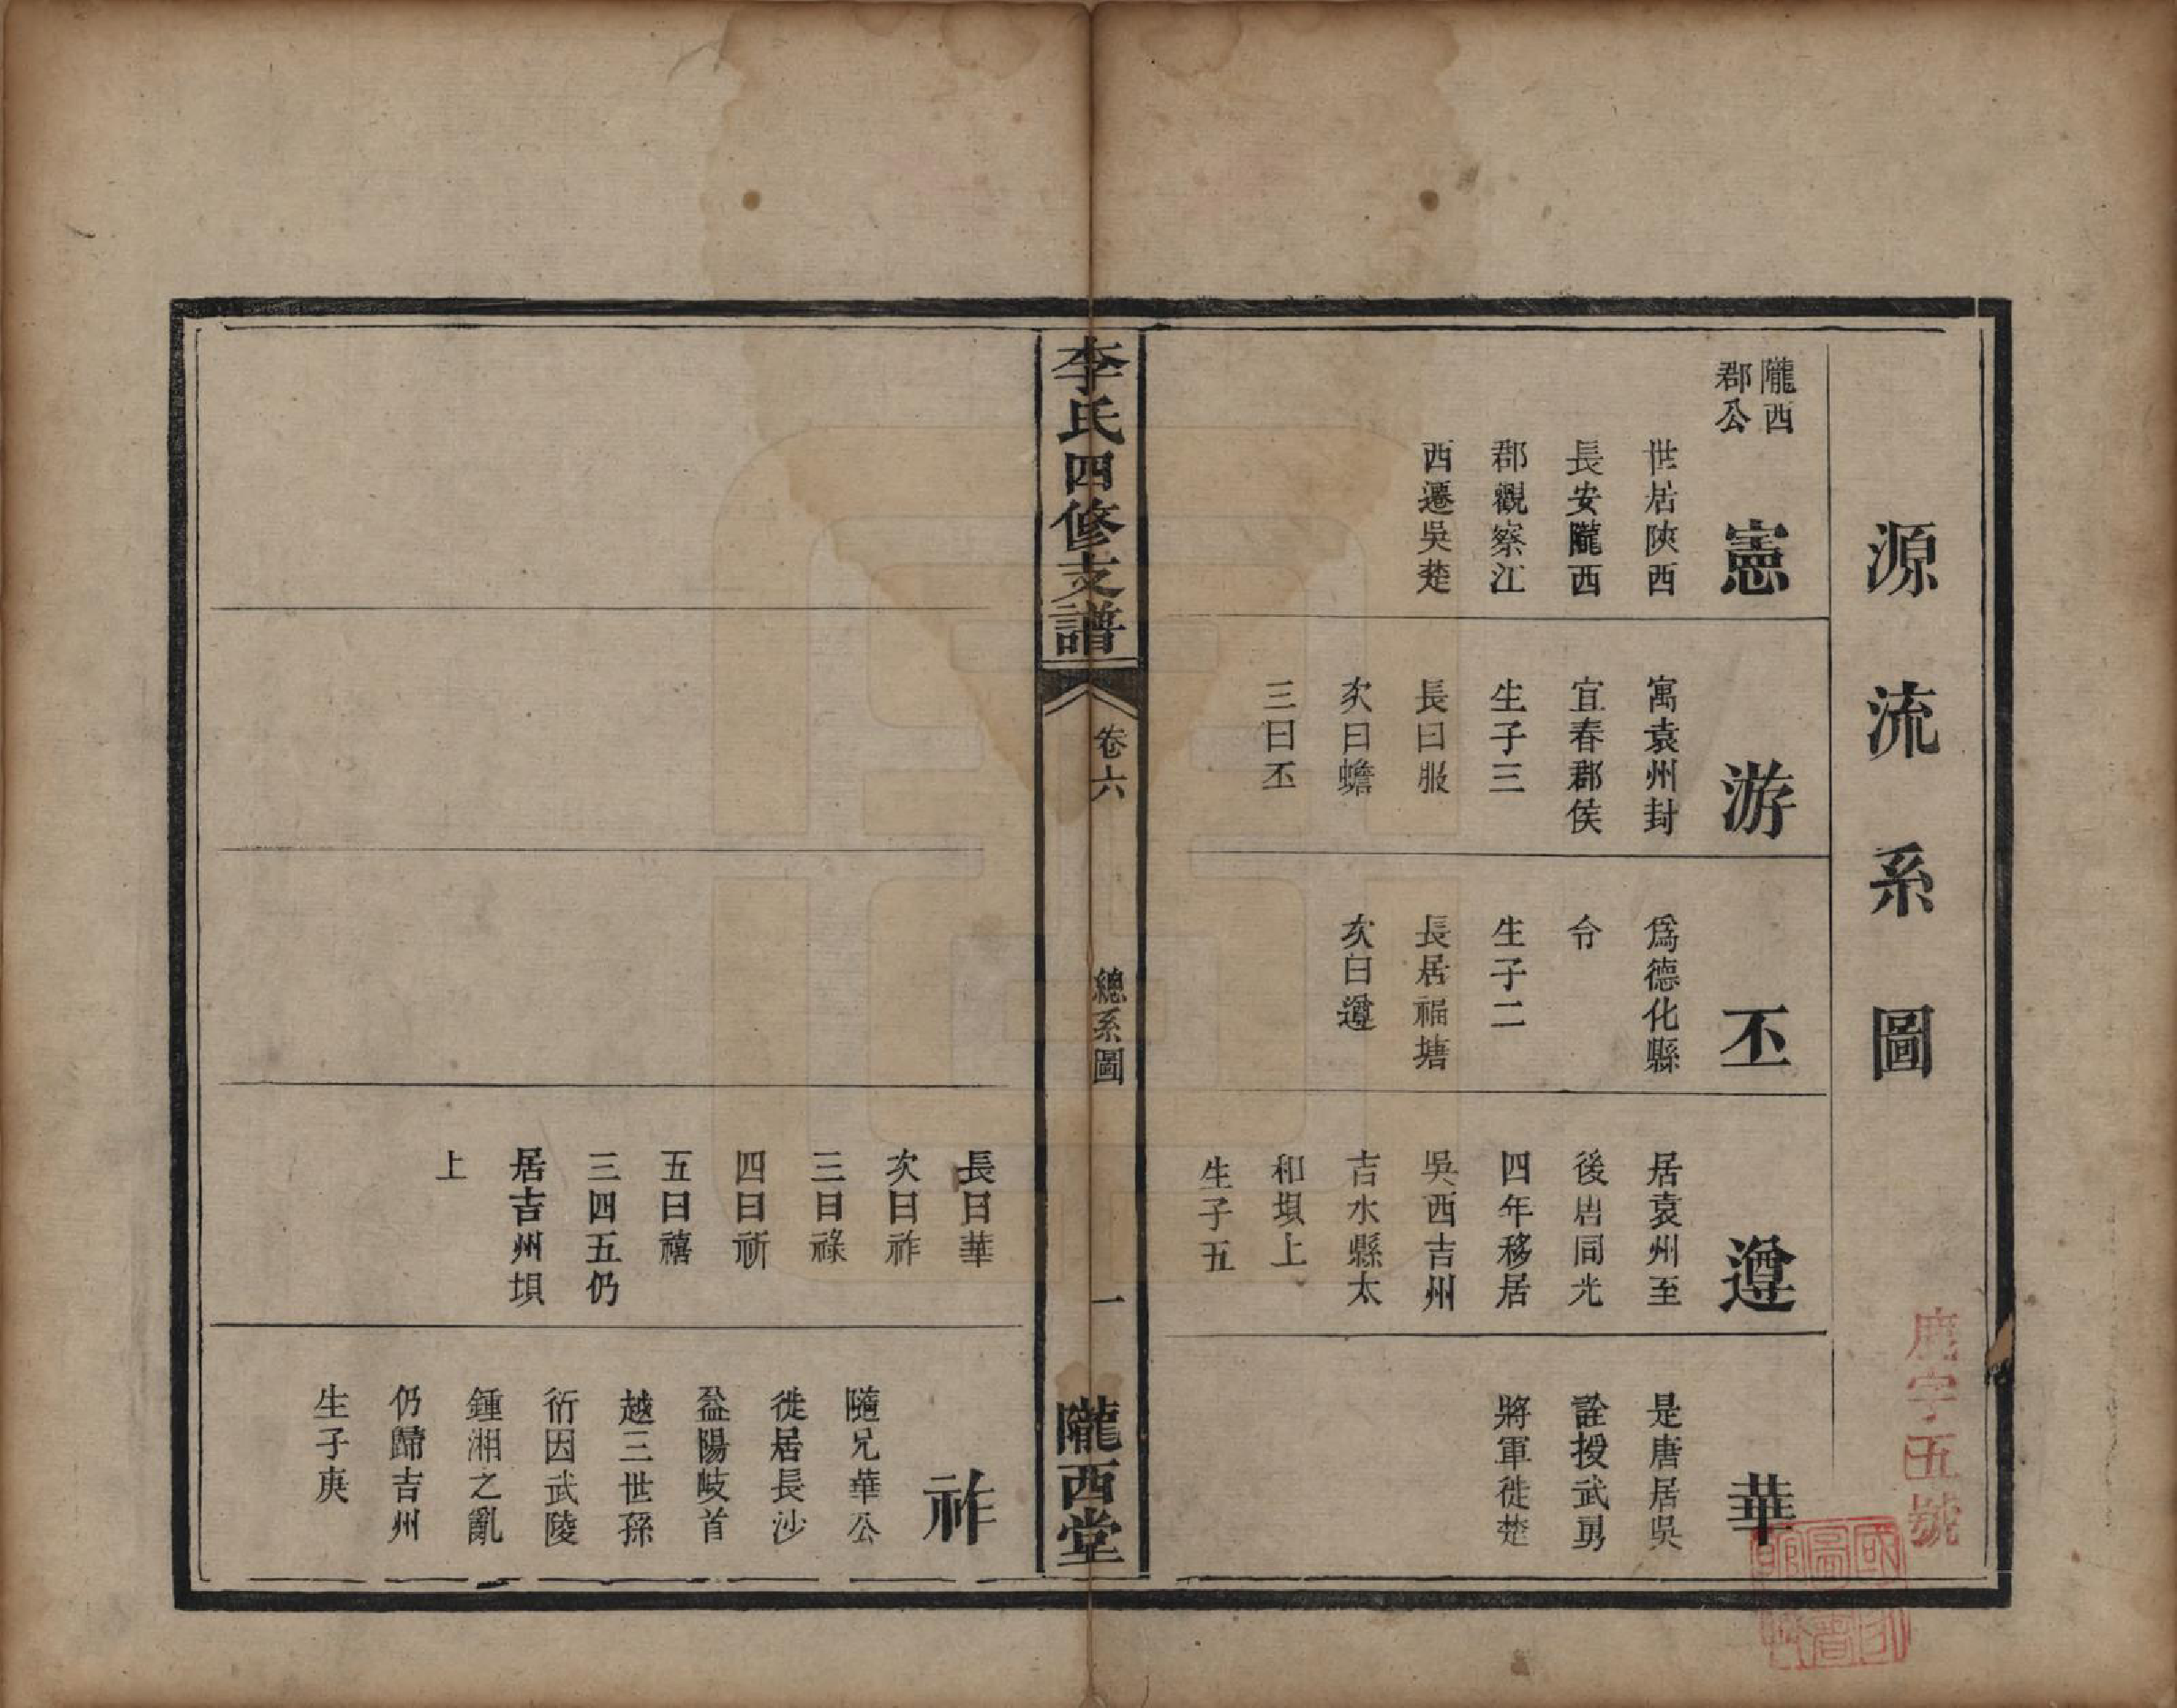 源流系圖
隴西
郡公
憲
世居陝西
長安隴西
郡觀察江
西遷吳楚
游
寓袁州封
宜春郡侯
生子三
長曰服
次曰蟾
三曰丕
丕
爲德化縣
令
生子二
長居福塘
次曰遵
遵
居袁州至
後唐同光
四年移居
吳西吉州
吉水縣太
和塤上
生子五
華
是唐居吳
詮授武勇
將軍徙楚
李氏四修支譜
卷六
總系圖
一
隴西堂
長曰華
次曰祚
三曰祿
四曰祈
五曰禧
三四五仍
居吉州塤
上
祚
隨兄華公
徙居長沙
益陽岐首
越三世孫
衍因武陵
鍾湘之亂
仍歸吉州
生子庚
字五號